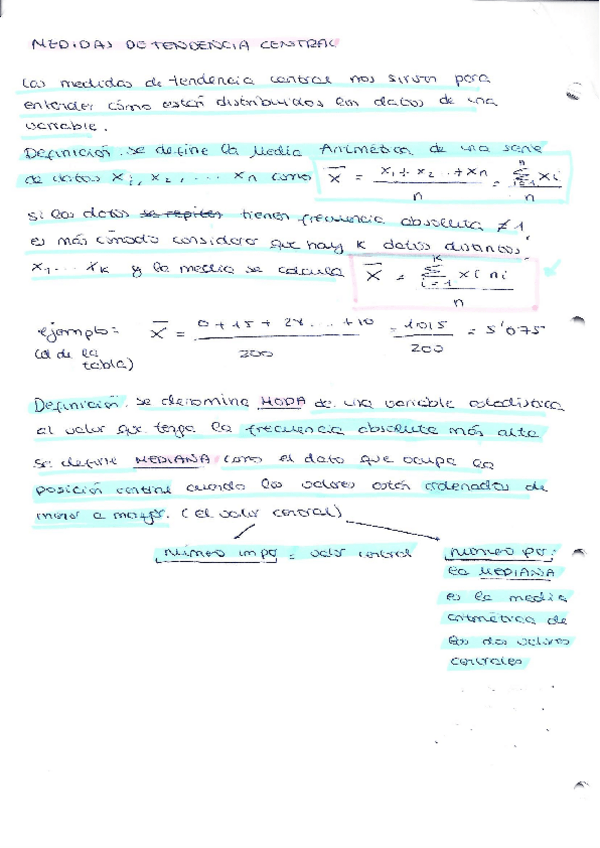 MEDIDAS DE TENDENCIA CENTRAL
Las medidas de tendencia central nos sirven para
entender cómo están distribuidos los datos de una
variable.
Definición. se define la Media Aritmética de una serie
de datos x₁, x₂, ... xn como x̄ = x₁ + x₂ ..+ xn / n = Σ i=1 n xi / n
si los datos se repiten tienen frecuencia absoluta ≠ 1
es más cómodo considerar que hay k datos distintos,
x₁... xk y la media se calcula x̄ = Σ i=1 k xi ni / n
ejemplo: x̄ = 0 + 15 + 24 ... + 10 / 200 = 1015 / 200 = 5'075
(el de la
tabla)
Definición. Se denomina MODA de una variable estadística
al valor que tenga la frecuencia absoluta más alta
Se define MEDIANA como el dato que ocupa la
posición central cuando los valores están ordenados de
menor a mayor. (el valor central)
número impar = valor central
número par:
la MEDIANA
es la media
aritmética de
los dos valores
centrales